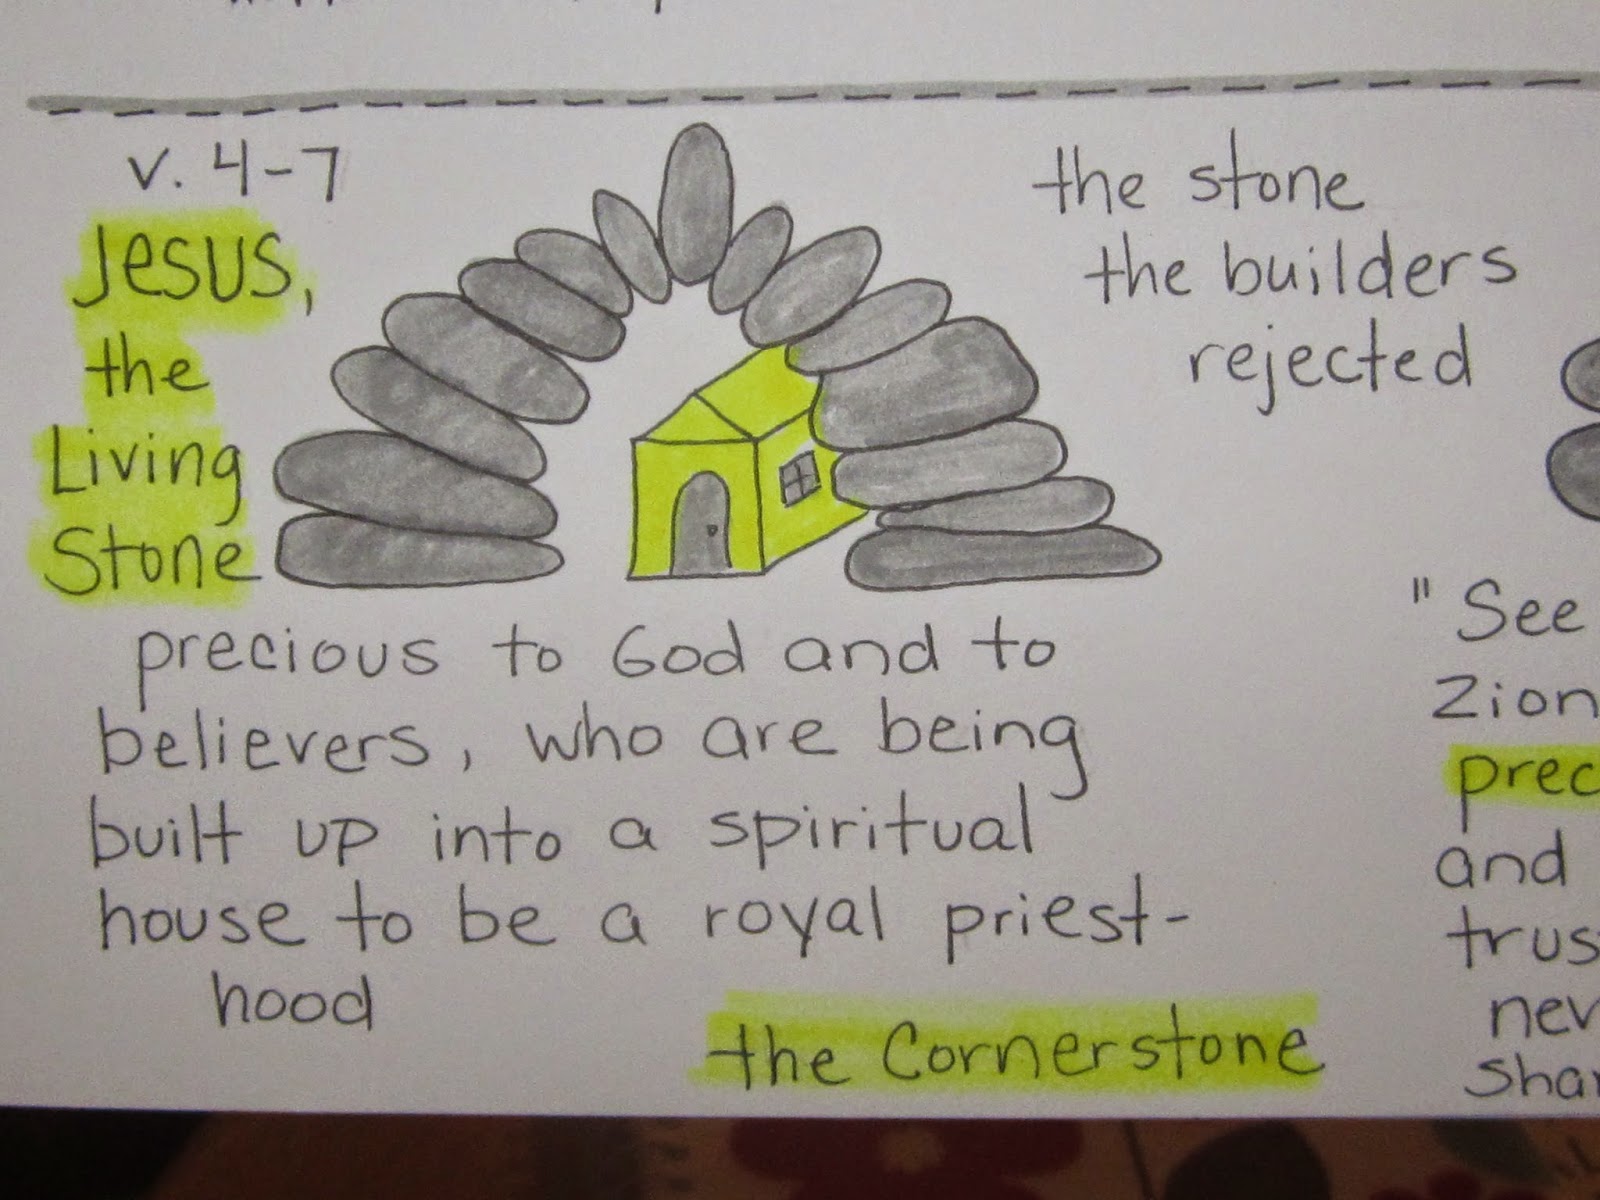 v. 4-7
Jesus,
the
Living
Stone
the stone
the builders
rejected
precious to God and to
believers, who are being
built up into a spiritual
house to be a royal priest-
hood
the Cornerstone
" See
Zion
prec
and
trus
nev
sha